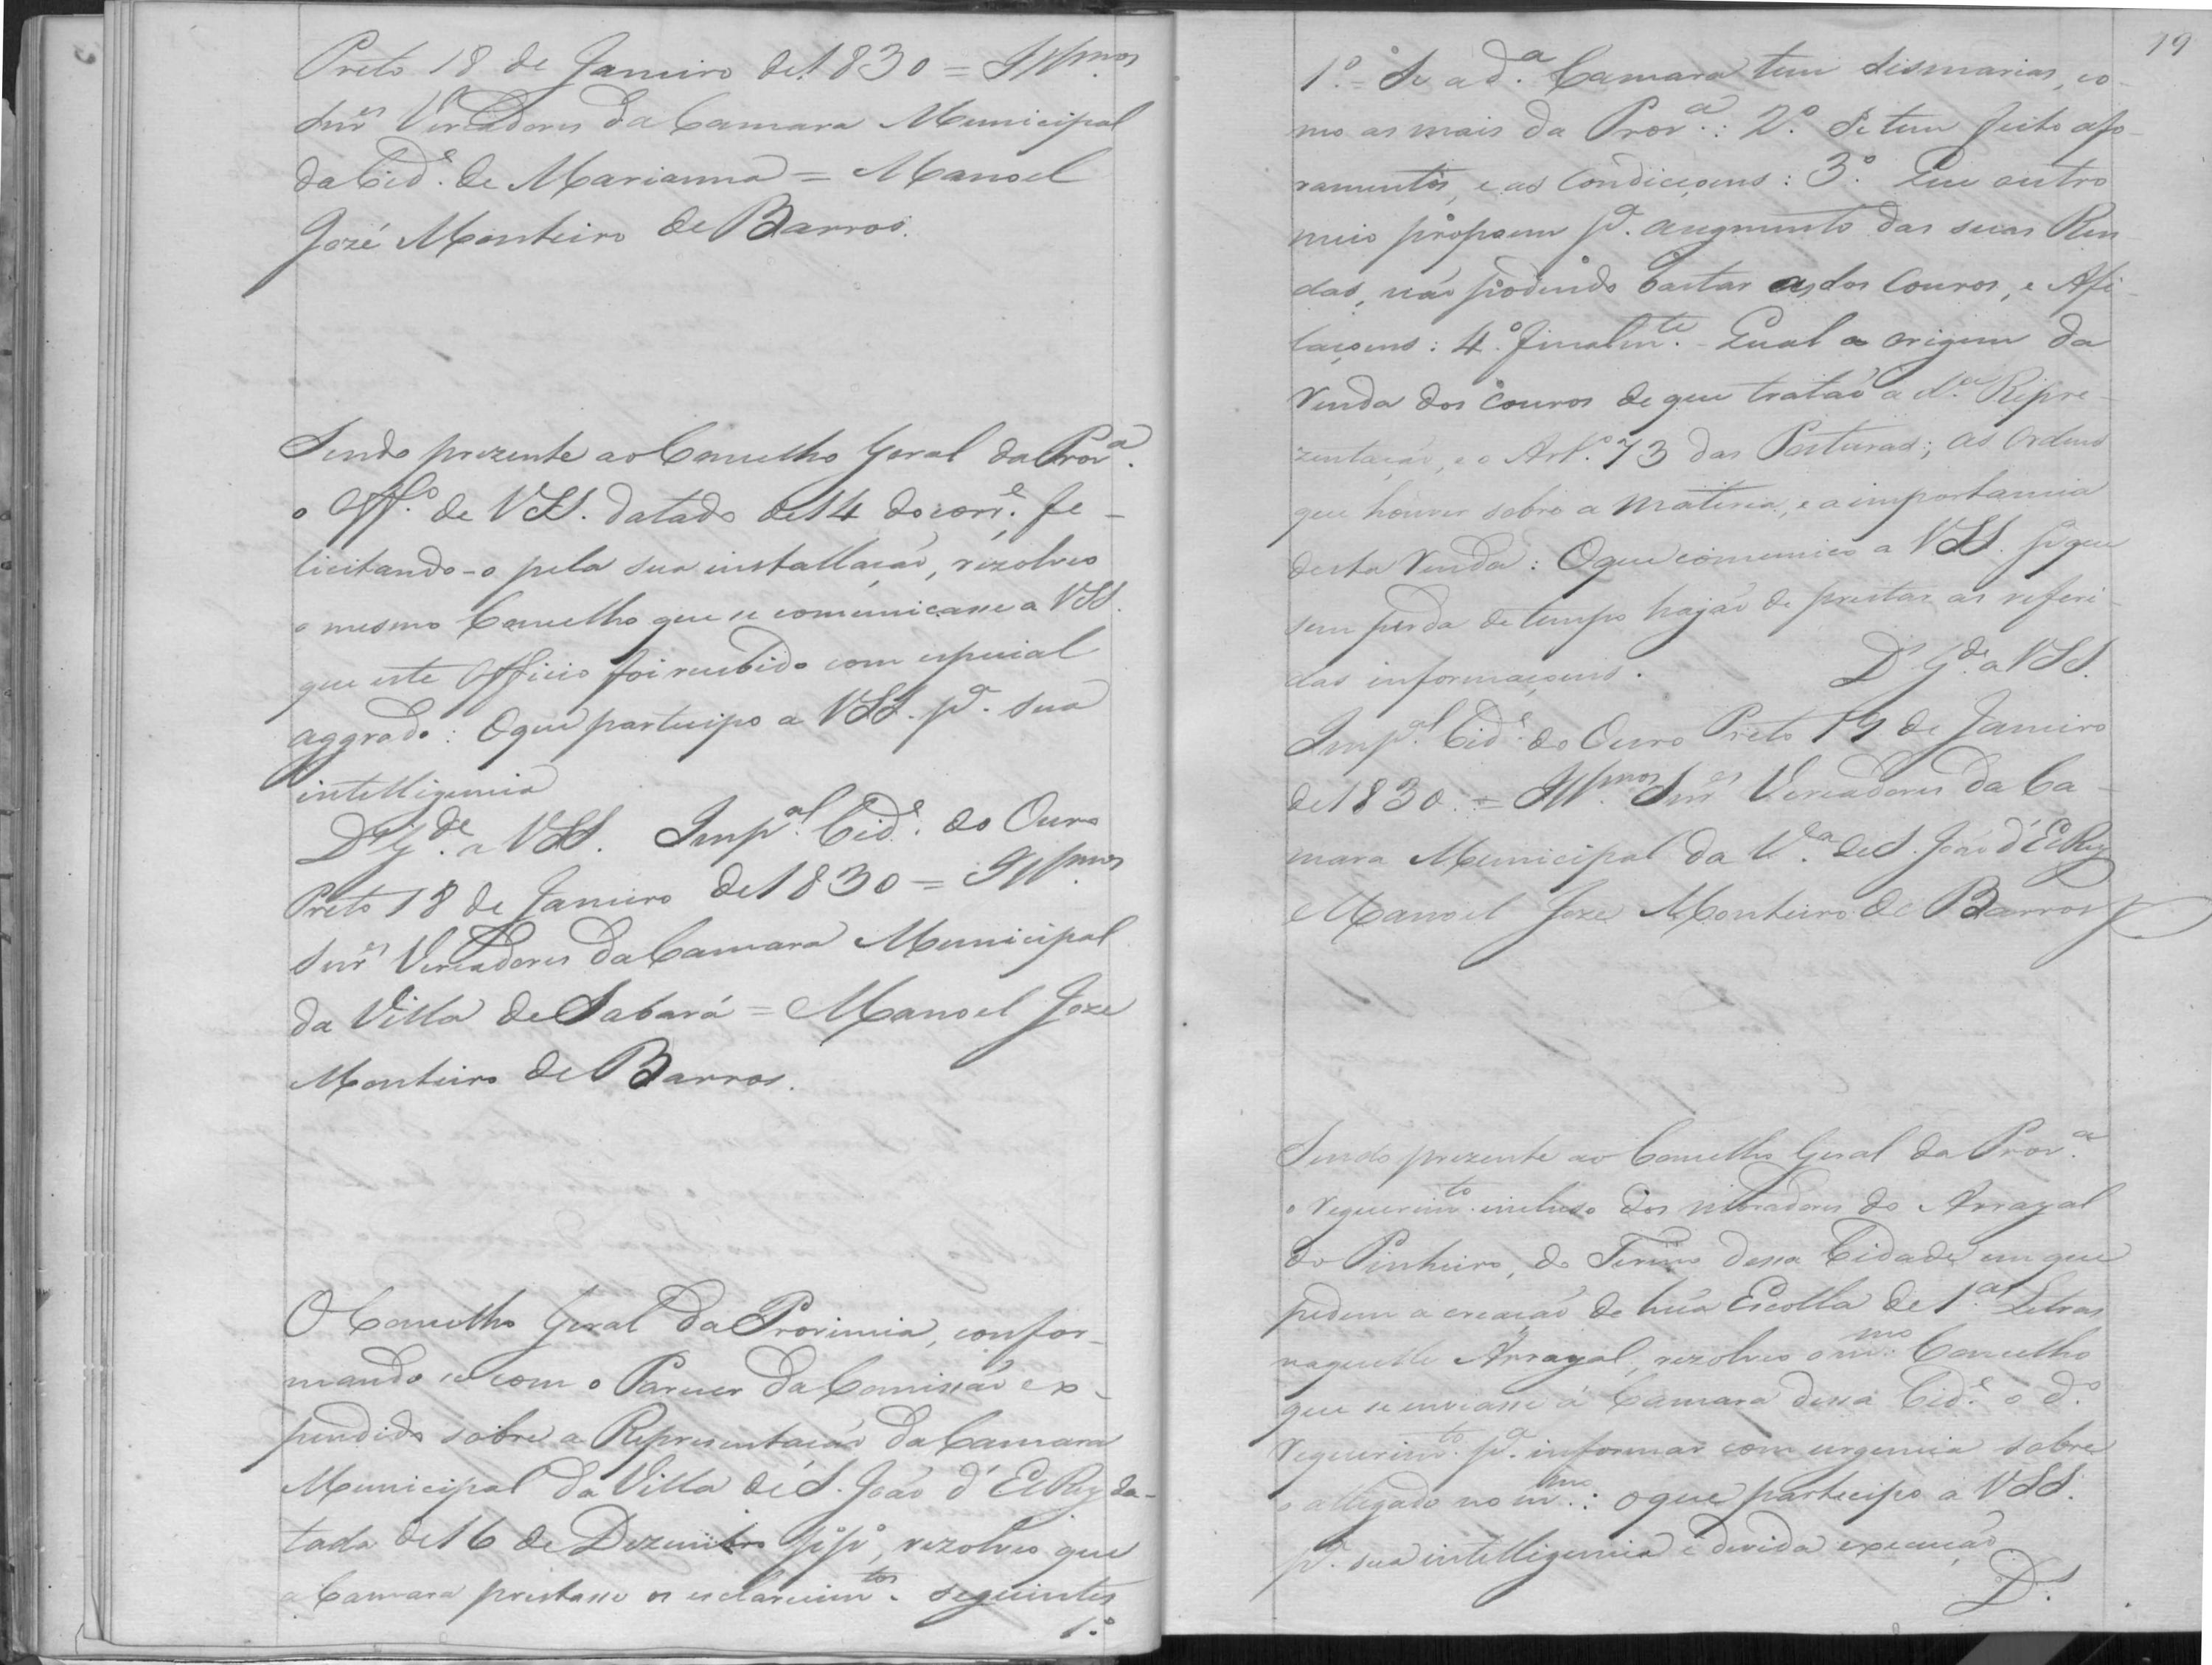 Preto 18 de Janeiro de 1830 = Ill.mos
Snr.es Vereadores da Camara Municipal
da Cid.e de Marianna = Manoel
José Monteiro de Barros.
Sendo prezente ao Concelho Geral da Prov.a
o Off.o de VSS. datado de 14 do corr.e fe-
licitando-o pela sua installação, rezolveo
o mesmo Concelho que se comunicasse a VSS.
que este Officio foi recebido com especial
aggrado: O que participo a VSS. p.a sua
intelligencia
D.s G.de a VSS. Imp.al Cid.e do Ouro
Preto 18 de Janeiro de 1830 = Ill.mos
Snr.es Vereadores da Camara Municipal
da Villa de Sabará = Manoel Joze
Monteiro de Barros.
O Concelho Geral da Provincia, confor-
mando se com o Parecer da Comissão ex-
pendido sobre a Representação da Camara
Municipal da Villa de S. João d'El Rey da-
tada de 16 de Dezembro p.p., rezolveo que
a Camara prestasse os esclarecim.tos seguintes
1.o
19
1.o = Se a d.a Camara tem sismarias, co-
mo as mais da Prov.a: 2.o Se tem feito afo-
ramentos, e as Condiçoens: 3.o Que outro
meio propoem p.a augmento das suas Ren
das, não podendo bastar as dos Couros, e Afi-
laçoens: 4.o finalm.te - Qual a origem da
Venda dos Couros de que tratão a d.a Repre-
zentação, e o Art.o 73 das Posturas; as Ordens
que houver sobre a materia, e a importancia
desta Venda: O que comunico a VSS. p.a que
sem perda de tempo hajão de prestar as referi-
das informaçoens. D.s G.de a VSS.
Imp.al Cid.e do Ouro Preto 19 de Janeiro
de 1830. = Ill.mos Snr.es Vereadores da Ca-
mara Municipal da V.a de S. João d'El Rey
Manoel Joze Monteiro de Barros
Sendo prezente ao Concelho Geral da Prov.a
o requerim.to incluso dos moradores do Arrayal
do Pinheiro, do Termo dessa Cidade em que
pedem a creação de hũa Escolla de 1.as Letras
naquelle Arrayal, rezolveo o m.mo Concelho
que se enviasse á Camara dessa Cid.e o d.o
requerim.to p.a informar com urgencia sobre
o allegado no m.mo: o que participo a VSS.
p.a sua intelligencia e devida execução
D.s